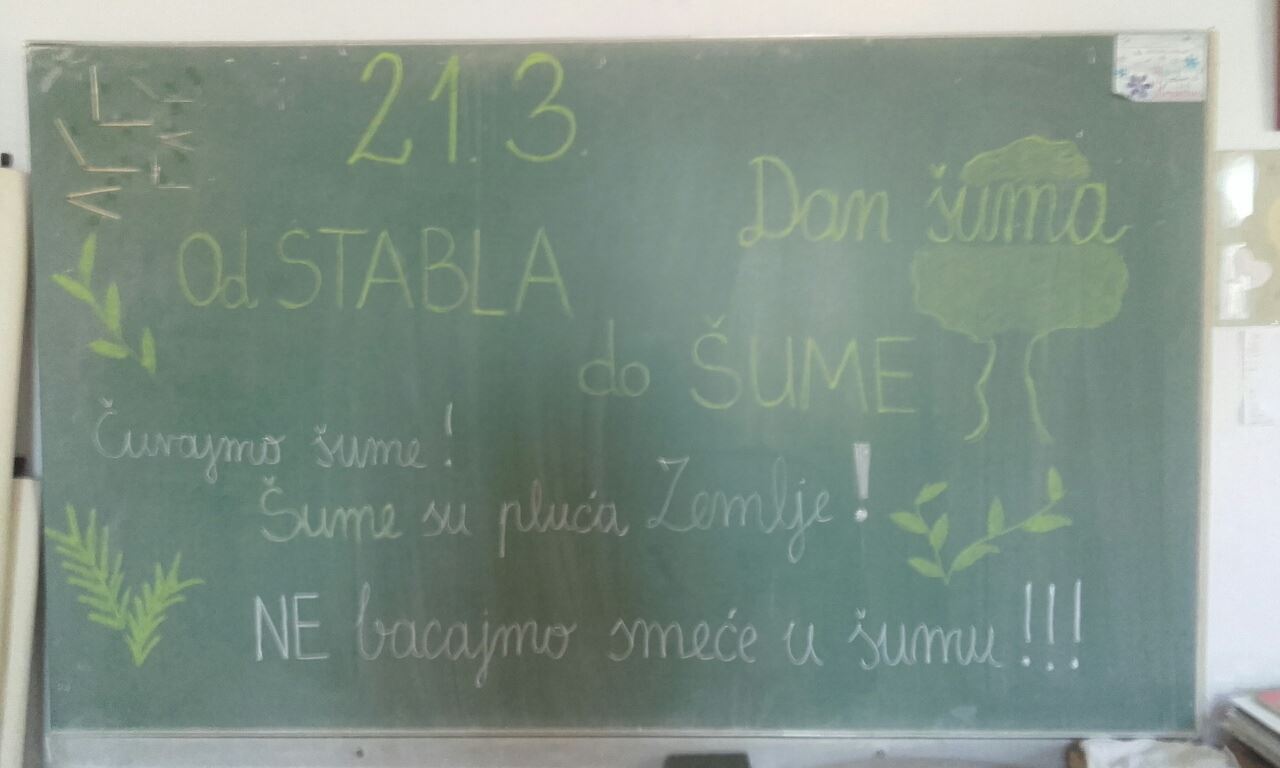 21. 3.
Dan šuma
Od STABLA
do ŠUME
Čuvajmo šume!
Šume su pluća Zemlje!
NE bacajmo smeće u šumu!!!